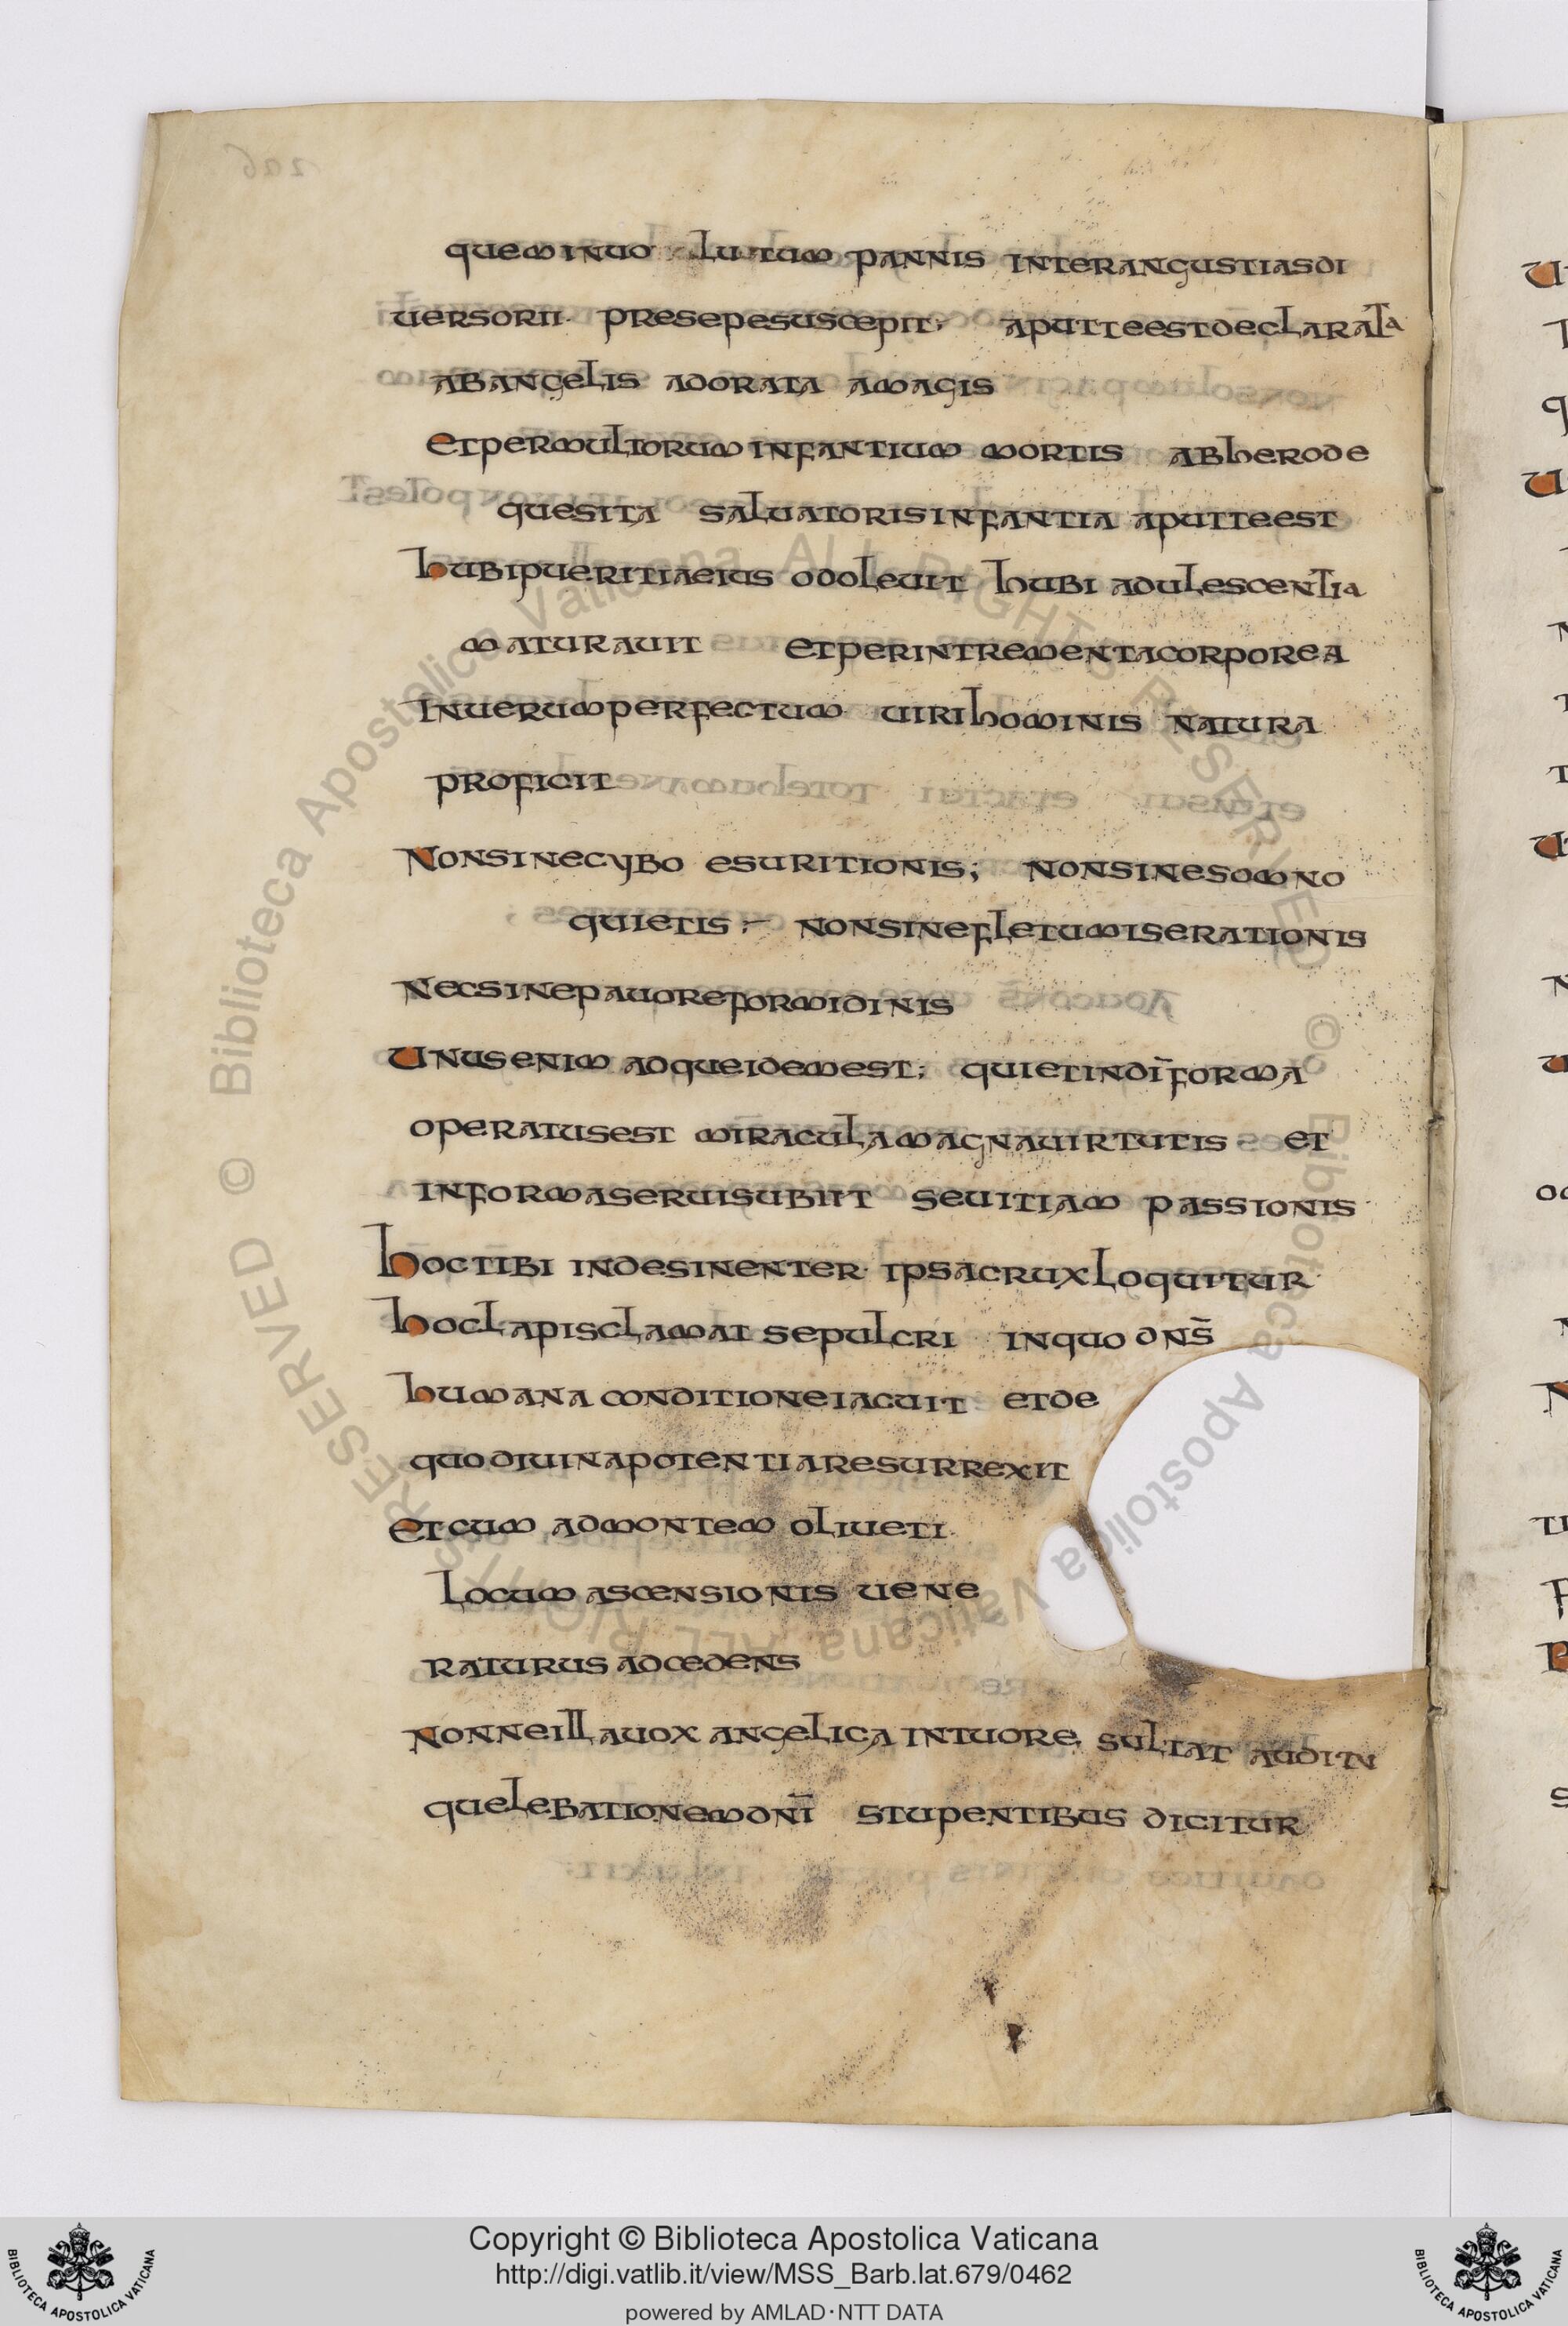 queminuo lutum pannis interangustiasdi
uersorii· presepesuscepit; aputteestdeclarata
abangelis adorata amagis
etpermultorum infantium mortis abherode
quesita saluatorisinfantia aputteest
hubipueritiaeius odoleuit hubi adulescentia
maturauit etperintrementacorporea
inuerumperfectum uirihominis natura
proficit
nonsinecybo esuritionis; nonsinesomno
quietis; nonsinefletumiserationis
necsinepauoreformidinis
unusenim adqueidemest; quietindīforma
operatusest miraculamagnauirtutis et
informaseruisubiit seuitiam passionis
hoctibi indesinenter ipsacruxloquitur
hoclapisclamat sepulcri inquo dns̄
humana conditioneiacuit etde
quodiuinapotentiaresurrexit
etcum admontem oliueti
locum ascensionis uene
raturus adcedens
nonneillauox angelica intuore sultat auditu
quelebationemdnī stupentibus dicitur
© Biblioteca Apostolica Vaticana ALL RIGHTS RESERVED
© Biblioteca Apostolica Vaticana ALL RIGHTS RESERVED
Copyright © Biblioteca Apostolica Vaticana
http://digi.vatlib.it/view/MSS_Barb.lat.679/0462
powered by AMLAD·NTT DATA
BIBLIOTECA APOSTOLICA VATICANA
BIBLIOTECA APOSTOLICA VATICANA